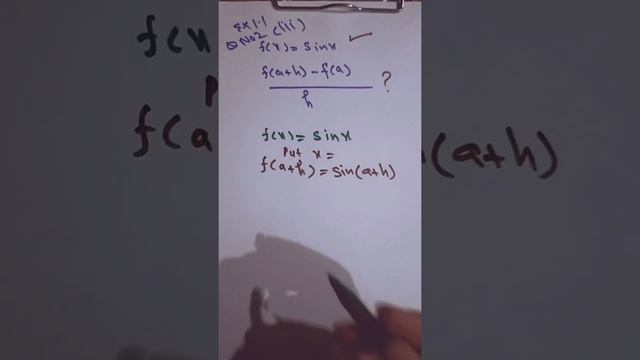 Ex 1.1
Q No2 (iii)
f(x) = Sinx
f(a+h) - f(a)
h
?
f(x) = Sinx
Put x =
f(a+h) = Sin(a+h)